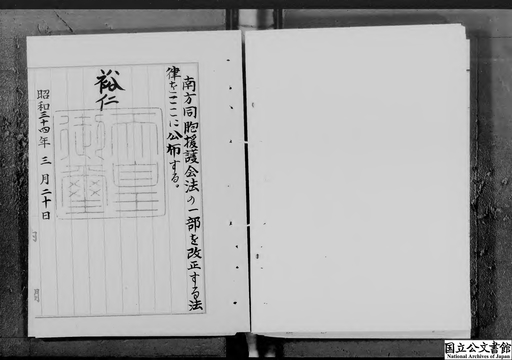 南方同胞援護会法の一部を改正する法
律をここに公布する。
裕仁
天皇
御璽
昭和三十四年三月二十日
国立公文書館
National Archives of Japan